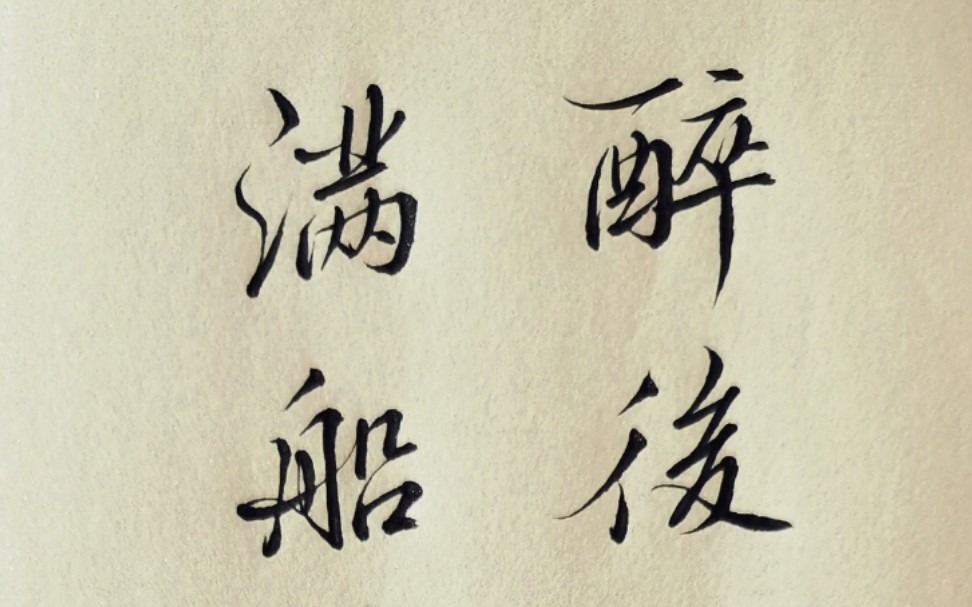 醉後
满船